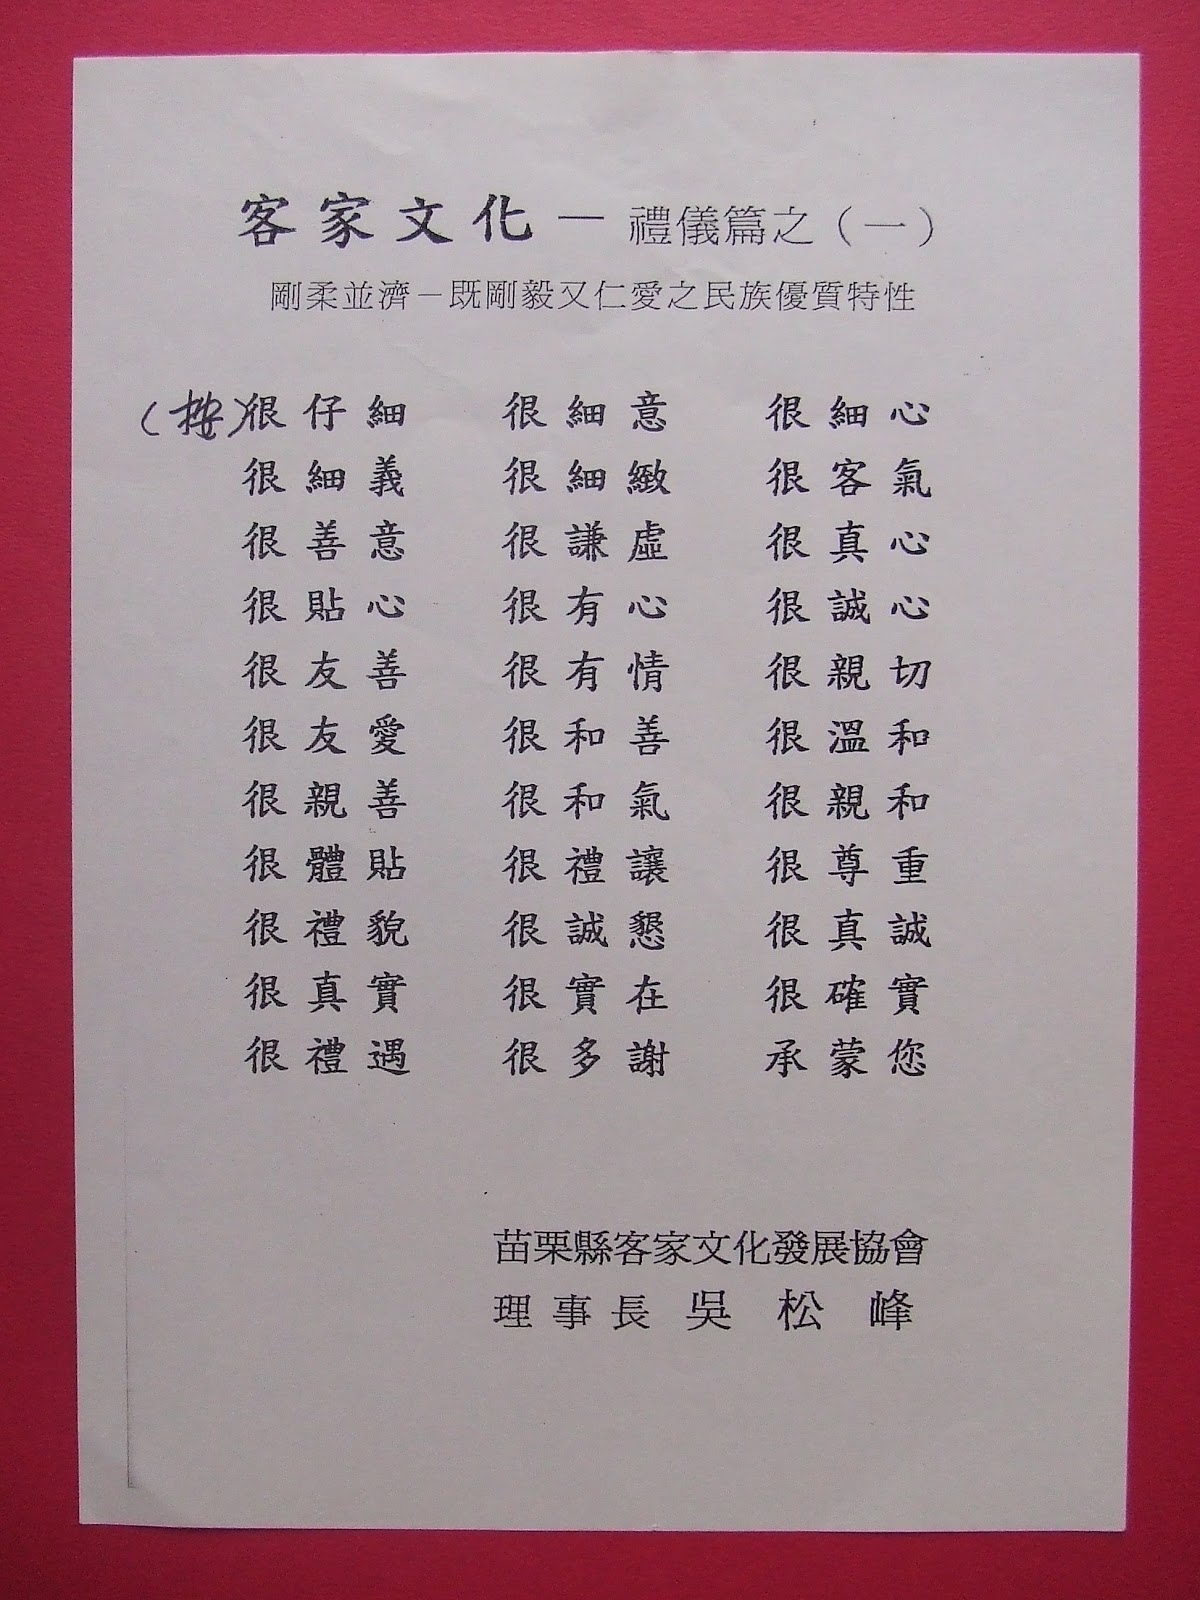 客家文化－禮儀篇之（一）
剛柔並濟－既剛毅又仁愛之民族優質特性
（按）很仔細 很細意 很細心
很細義 很細緻 很客氣
很善意 很謙虛 很真心
很貼心 很有心 很誠心
很友善 很有情 很親切
很友愛 很和善 很溫和
很親善 很和氣 很親和
很體貼 很禮讓 很尊重
很禮貌 很誠懇 很真誠
很真實 很實在 很確實
很禮遇 很多謝 承蒙您
苗栗縣客家文化發展協會
理事長 吳松峰